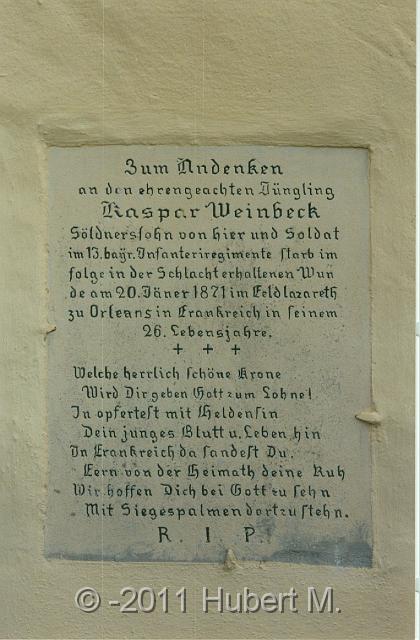 Zum Andenken
an den ehrengeachten Jüngling
Kaspar Weinbeck
Söldnerssohn von hier und Soldat
im 13. bayr. Infanteriregimente starb im
folge in der Schlacht erhaltenen Wun
de am 20. Jäner 1871 im Feldlazareth
zu Orleans in Frankreich in seinem
26. Lebensjahre.
+ + +
Welche herrlich schöne Krone
Wird Dir geben Gott zum Lohne!
In opfertest mit Heldensin
Dein junges Blutt u. Leben hin
In Frankreich da fandest Du,
Fern von der Heimath deine Ruh
Wir hoffen Dich bei Gott zu sehn
Mit Siegespalmen dort zu stehn.
R. I. P.
© -2011 Hubert M.